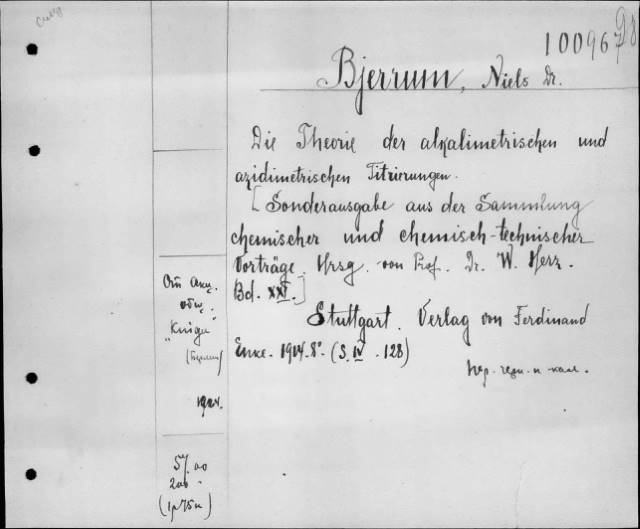 100967
98
Bjerrum, Niels Dr.
Die Theorie der alkalimetrischen und
azidimetrischen Titrierungen.
[Sonderausgabe aus der Sammlung
chemischer und chemisch-technischer
Vorträge. Hrsg. von Prof. Dr. W. Herz.
Bd. XXI.]
Stuttgart. Verlag von Ferdinand
Enke. 1914. 8°. (S. IV. 128)
От акц.
общ.
"Книга"
1924.